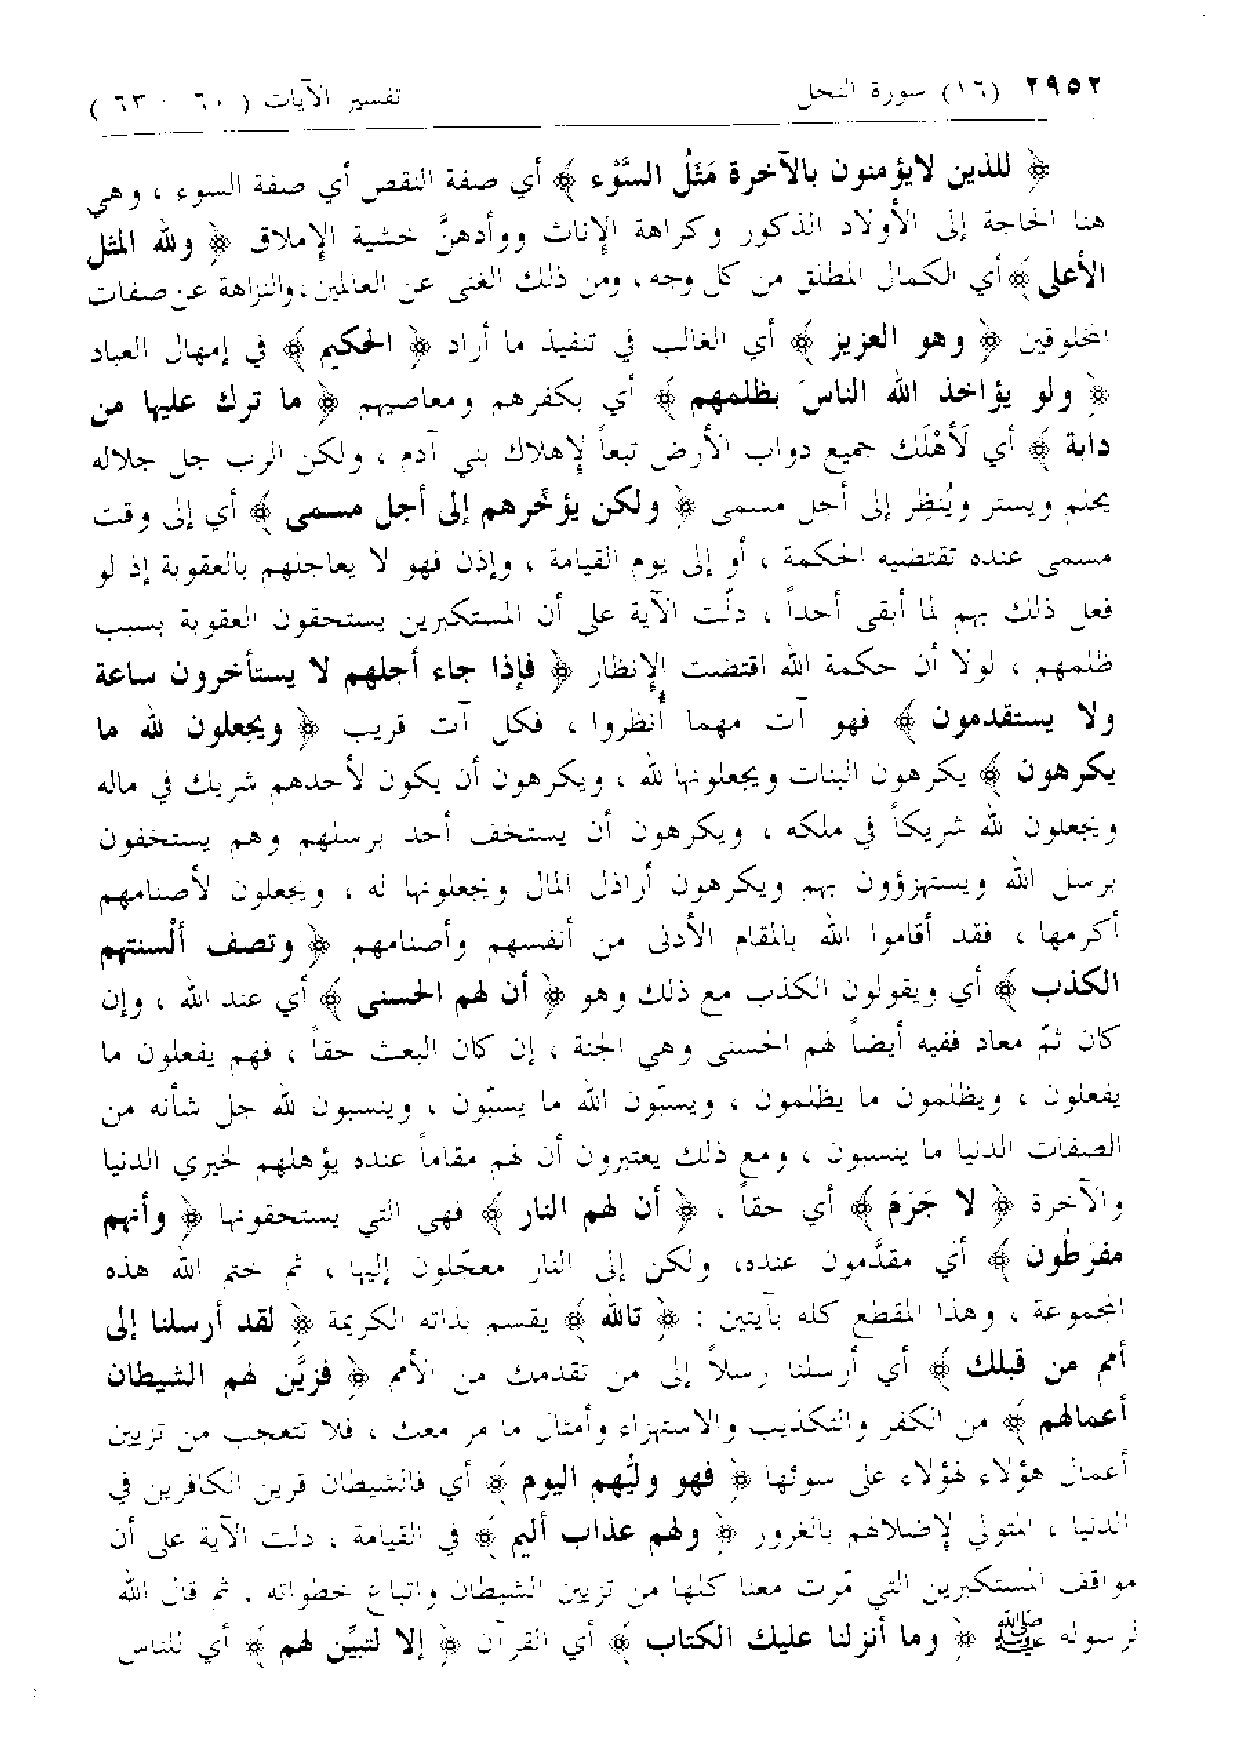 ٢٩٥٢ (١٦) سورة النحل تفسير الآيات ( ٦٠ - ٦٣ )
﴿ للذين لايؤمنون بالآخرة مَثَلُ السَّوْء ﴾ أي صفة النقص أي صفة السوء ، وهي
هنا الحاجة إلى الأولاد الذكور وكراهة الإناث ووأدهنَّ خشية الإملاق ﴿ ولله المثل
الأعلى ﴾ أي الكمال المطلق من كل وجه ، ومن ذلك الغنى عن العالمين ، والنزاهة عن صفات
المخلوقين ﴿ وهو العزيز ﴾ أي الغالب في تنفيذ ما أراد ﴿ الحكيم ﴾ في إمهال العباد
﴿ ولو يؤاخذ الله الناسَ بظلمهم ﴾ أي بكفرهم ومعاصيهم ﴿ ما ترك عليها من
دابة ﴾ أي لَأَهْلَك جميع دواب الأرض تبعاً لإهلاك بني آدم ، ولكن الرب جل جلاله
يحلم ويستر ويُنظِر إلى أجل مسمى ﴿ ولكن يؤخّرهم إلى أجل مسمى ﴾ أي إلى وقت
مسمى عنده تقتضيه الحكمة ، أو إلى يوم القيامة ، وإذن فهو لا يعاجلهم بالعقوبة إذ لو
فعل ذلك بهم لما أبقى أحداً ، دلّت الآية على أن المستكبرين يستحقون العقوبة بسبب
ظلمهم ، لولا أن حكمة الله اقتضت الإنظار ﴿ فإذا جاء أجلهم لا يستأخرون ساعة
ولا يستقدمون ﴾ فهو آت مهما أُنظروا ، فكل آت قريب ﴿ ويجعلون لله ما
يكرهون ﴾ يكرهون البنات ويجعلونها لله ، ويكرهون أن يكون لأحدهم شريك في ماله
ويجعلون لله شريكاً في ملكه ، ويكرهون أن يستخف أحد برسلهم وهم يستخفون
برسل الله ويستهزؤون بهم ويكرهون أراذل المال ويجعلونها له ، ويجعلون لأصنامهم
أكرمها ، فقد أقاموا الله بالمقام الأدنى من أنفسهم وأصنامهم ﴿ وتصف ألْسنتهم
الكذب ﴾ أي ويقولون الكذب مع ذلك وهو ﴿ أن لهم الحسنى ﴾ أي عند الله ، وإن
كان ثمّ معاد ففيه أيضاً لهم الحسنى وهي الجنة ، إن كان البعث حقاً ، فهم يفعلون ما
يفعلون ، ويظلمون ما يظلمون ، ويسبّون الله ما يسبّون ، وينسبون لله جل شأنه من
الصفات الدنيا ما ينسبون ، ومع ذلك يعتبرون أن لهم مقاماً عنده يؤهلهم لخيري الدنيا
والآخرة ﴿ لا جَرَمَ ﴾ أي حقاً ، ﴿ أن لهم النار ﴾ فهي التي يستحقونها ﴿ وأنهم
مفرَطُون ﴾ أي مقدَّمون عنده، ولكن إلى النار معجّلون إليها ، ثم ختم الله هذه
المجموعة ، وهذا المقطع كله بآيتين : ﴿ تالله ﴾ يقسم بذاته الكريمة ﴿ لقد أرسلنا إلى
أمم من قبلك ﴾ أي أرسلنا رسلاً إلى من تقدمك من الأمم ﴿ فزيَّن لهم الشيطان
أعمالهم ﴾ من الكفر والتكذيب والاستهزاء وأمثال ما مر معك ، فلا تتعجب من تزيين
أعمال هؤلاء لهؤلاء على سوئها ﴿ فهو وليُّهم اليوم ﴾ أي فالشيطان قرين الكافرين في
الدنيا ، المتولي لإضلالهم بالغرور ﴿ ولهم عذاب أليم ﴾ في القيامة ، دلت الآية على أن
مواقف المستكبرين التي مرّت معنا كلها من تزيين الشيطان واتباع خطواته . ثم قال الله
لرسوله ﷺ ﴿ وما أنزلنا عليك الكتاب ﴾ أي القرآن ﴿ إلا لتبيِّن لهم ﴾ أي للناس